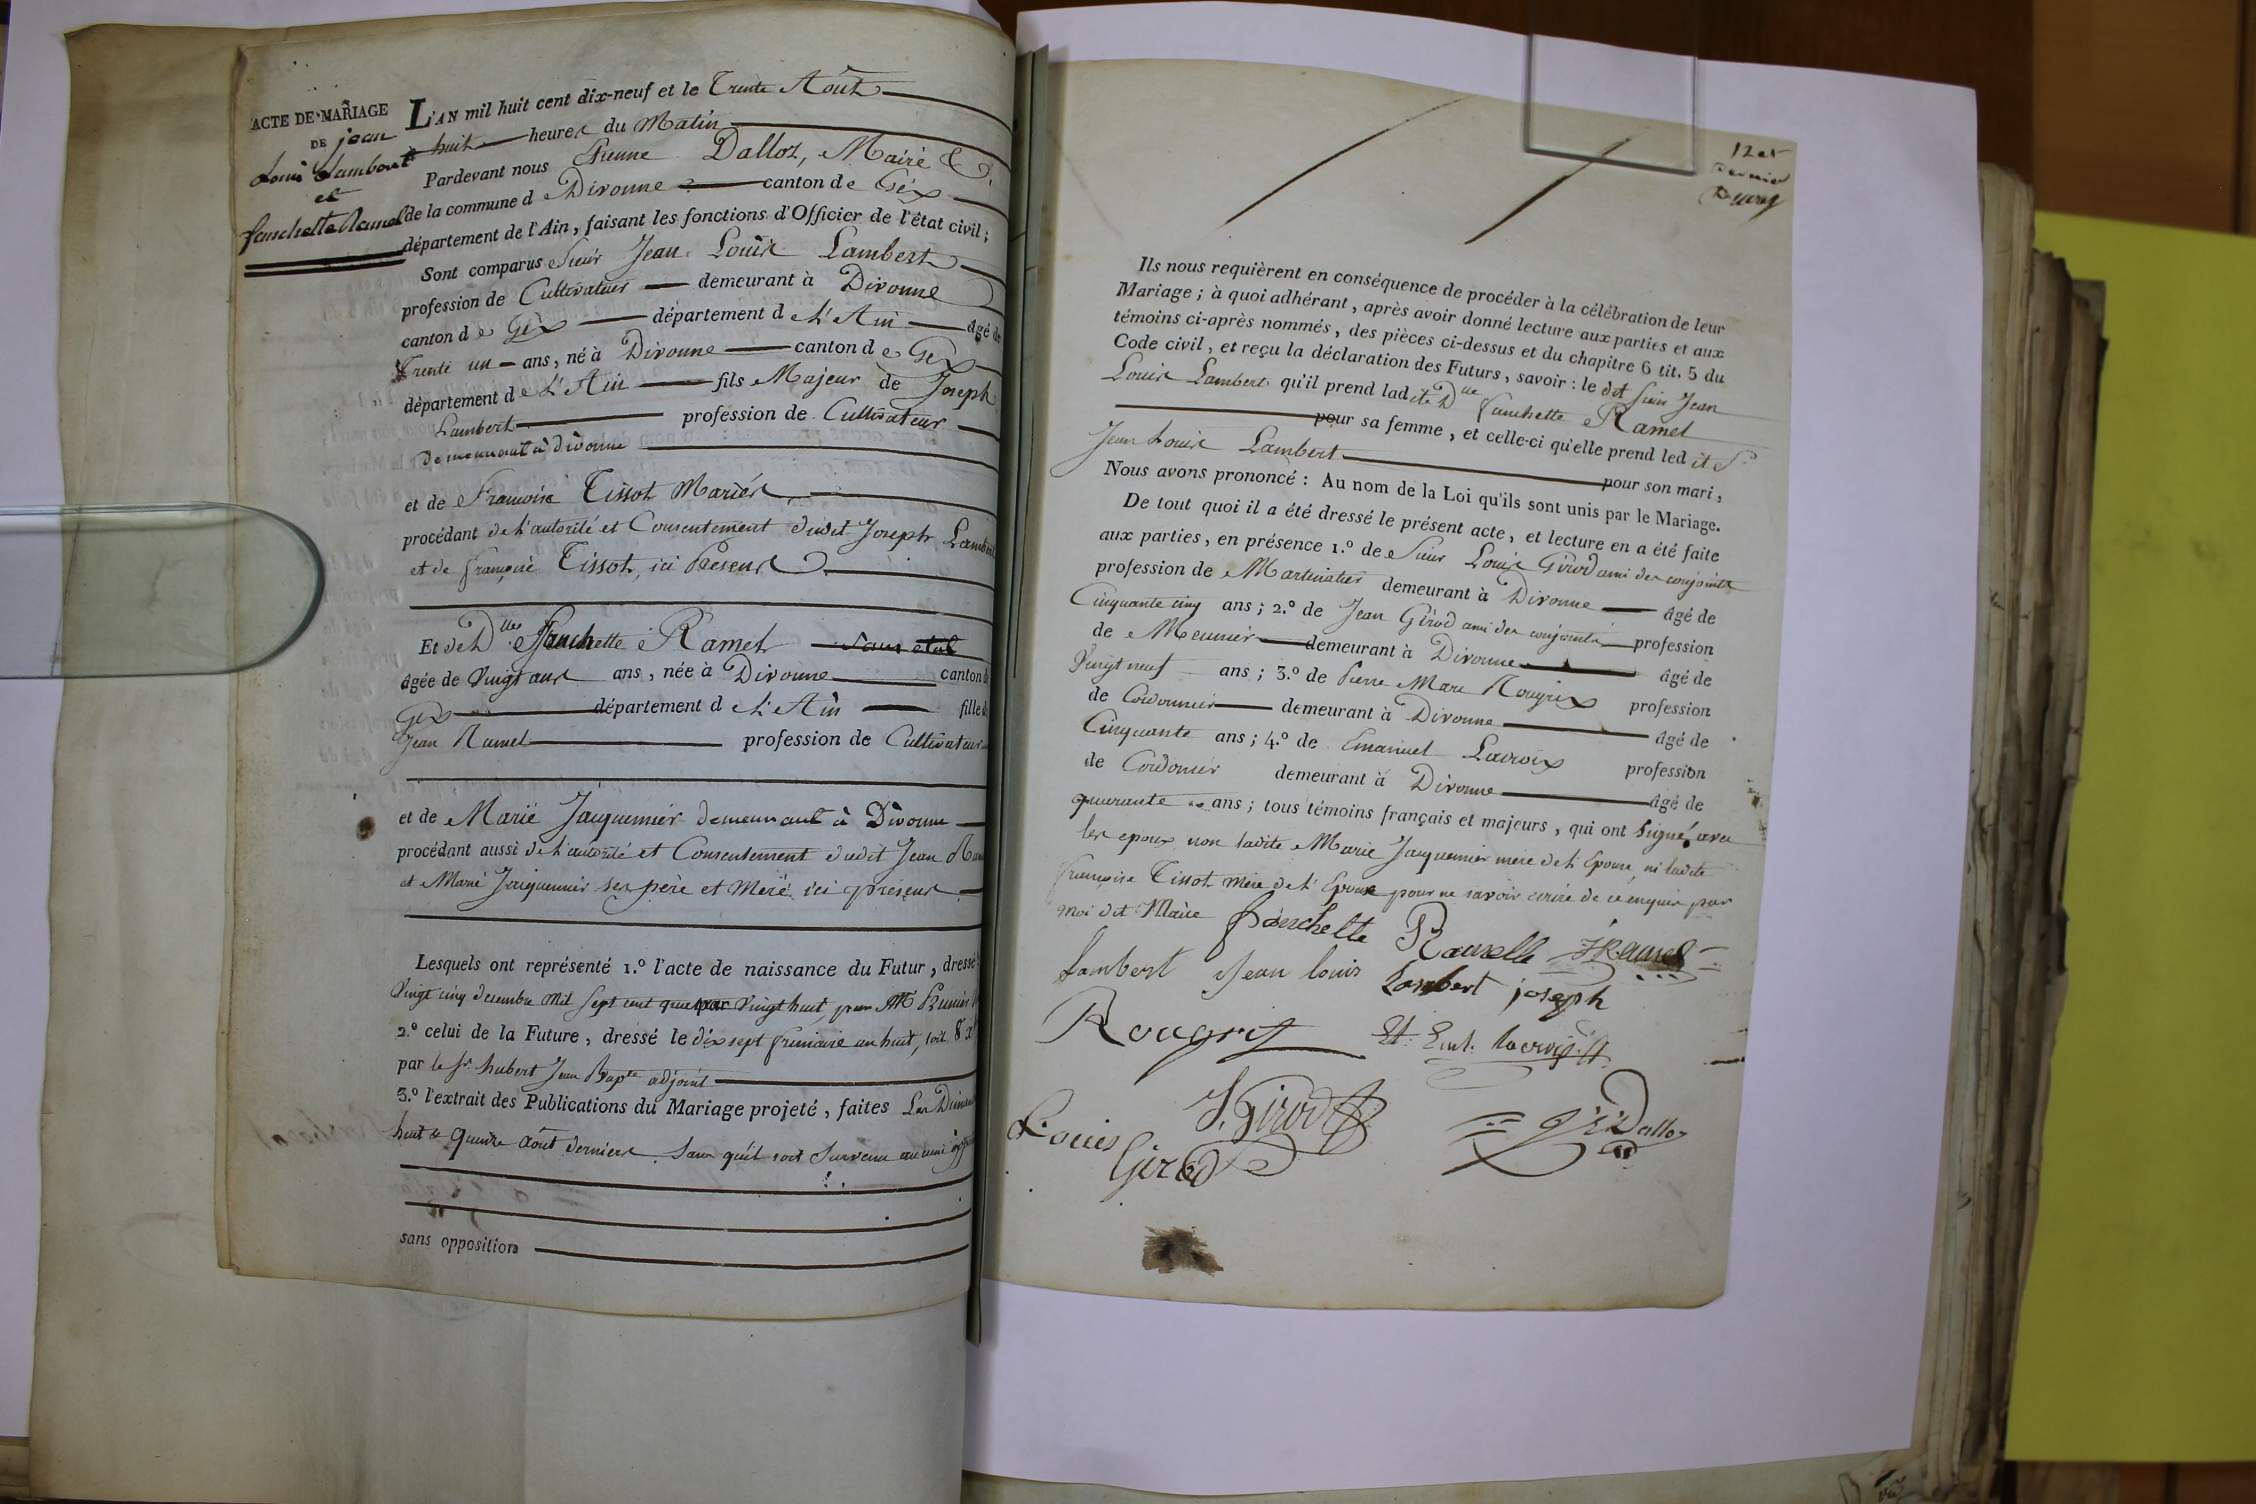 ACTE DE MARIAGE
DE jean
Louis Lambert
et
fanchette Ramel
L'AN mil huit cent dix-neuf et le Trente Août
à huit heures du Matin
Pardevant nous Etienne Dalloz, Maire &
de la commune d Divonne canton de Gex
département de l'Ain, faisant les fonctions d'Officier de l'état civil;
Sont comparus Sieur Jean Louis Lambert
profession de Cultivateur demeurant à Divonne
canton de Gex département de L'Ain âgé de
Trente un ans, né à Divonne canton de Gex
département de L'Ain fils Majeur de Joseph
Lambert profession de Cultivateur
demeurant à divonne
et de Francoise Tissot Mariés
procédant de L'autorité et Consentement dudit Joseph Lambert
et de françoise Tissot, ici Présens
Et de D.lle Fanchette Ramel sans état
âgée de Vingt ans ans, née à Divonne canton de
Gex département de L'Ain fille de
Jean Ramel profession de Cultivateur
et de Marie Jacquemier demeurant à Divonne
procédant aussi de L'autorité et Consentement dudit Jean
et Marie Jacquemier ses père et Mère ici présens
Lesquels ont représenté 1.º l'acte de naissance du Futur, dressé
Vingt cinq decembre Mil Sept cent quatre Vingt huit, par Mr
2.º celui de la Future, dressé le dix sept frimaire an huit, soit 8
par le Sr. hubert Jean Bapte adjoint
3.º l'extrait des Publications du Mariage projeté, faites Les
huit & Quinze Août derniers Sans qu'il soit Survenu aucune
sans opposition
12 et
Dernier
Ils nous requièrent en conséquence de procéder à la célébration de leur
Mariage; à quoi adhérant, après avoir donné lecture aux parties et aux
témoins ci-après nommés, des pièces ci-dessus et du chapitre 6 tit. 5 du
Code civil, et reçu la déclaration des Futurs, savoir: le dit Sieur Jean
Louis Lambert qu'il prend ladite Dlle fanchette Ramel
pour sa femme, et celle-ci qu'elle prend ledit Sr
Jean Louis Lambert pour son mari,
Nous avons prononcé: Au nom de la Loi qu'ils sont unis par le Mariage.
De tout quoi il a été dressé le présent acte, et lecture en a été faite
aux parties, en présence 1.º de Sieur Louis Girod ami des conjoints
profession de Martinatier demeurant à Divonne âgé de
Cinquante cinq ans; 2.º de Jean Girod ami des conjoints profession
de Meunier demeurant à Divonne âgé de
Vingt neuf ans; 3.º de Pierre Marc Rougrix profession
de Cordonnier demeurant à Divonne âgé de
Cinquante ans; 4.º de Emanuel Lacroix profession
de Cordonier demeurant à Divonne âgé de
quarante ans; tous témoins français et majeurs, qui ont Signé, avec
les epoux non ladite Marie Jacquemier mère de L'Epouse, ni ladite
françoise Tissot Mère de L'Epoux pour ne savoir ecrire de ce enquis par
moi dit Maire fanchette Ramelle JRamel
Lambert Jean louis Lambert joseph
Rougrix Et. Eml. lacroix
J. Girod
Louis
Girod
Dalloz